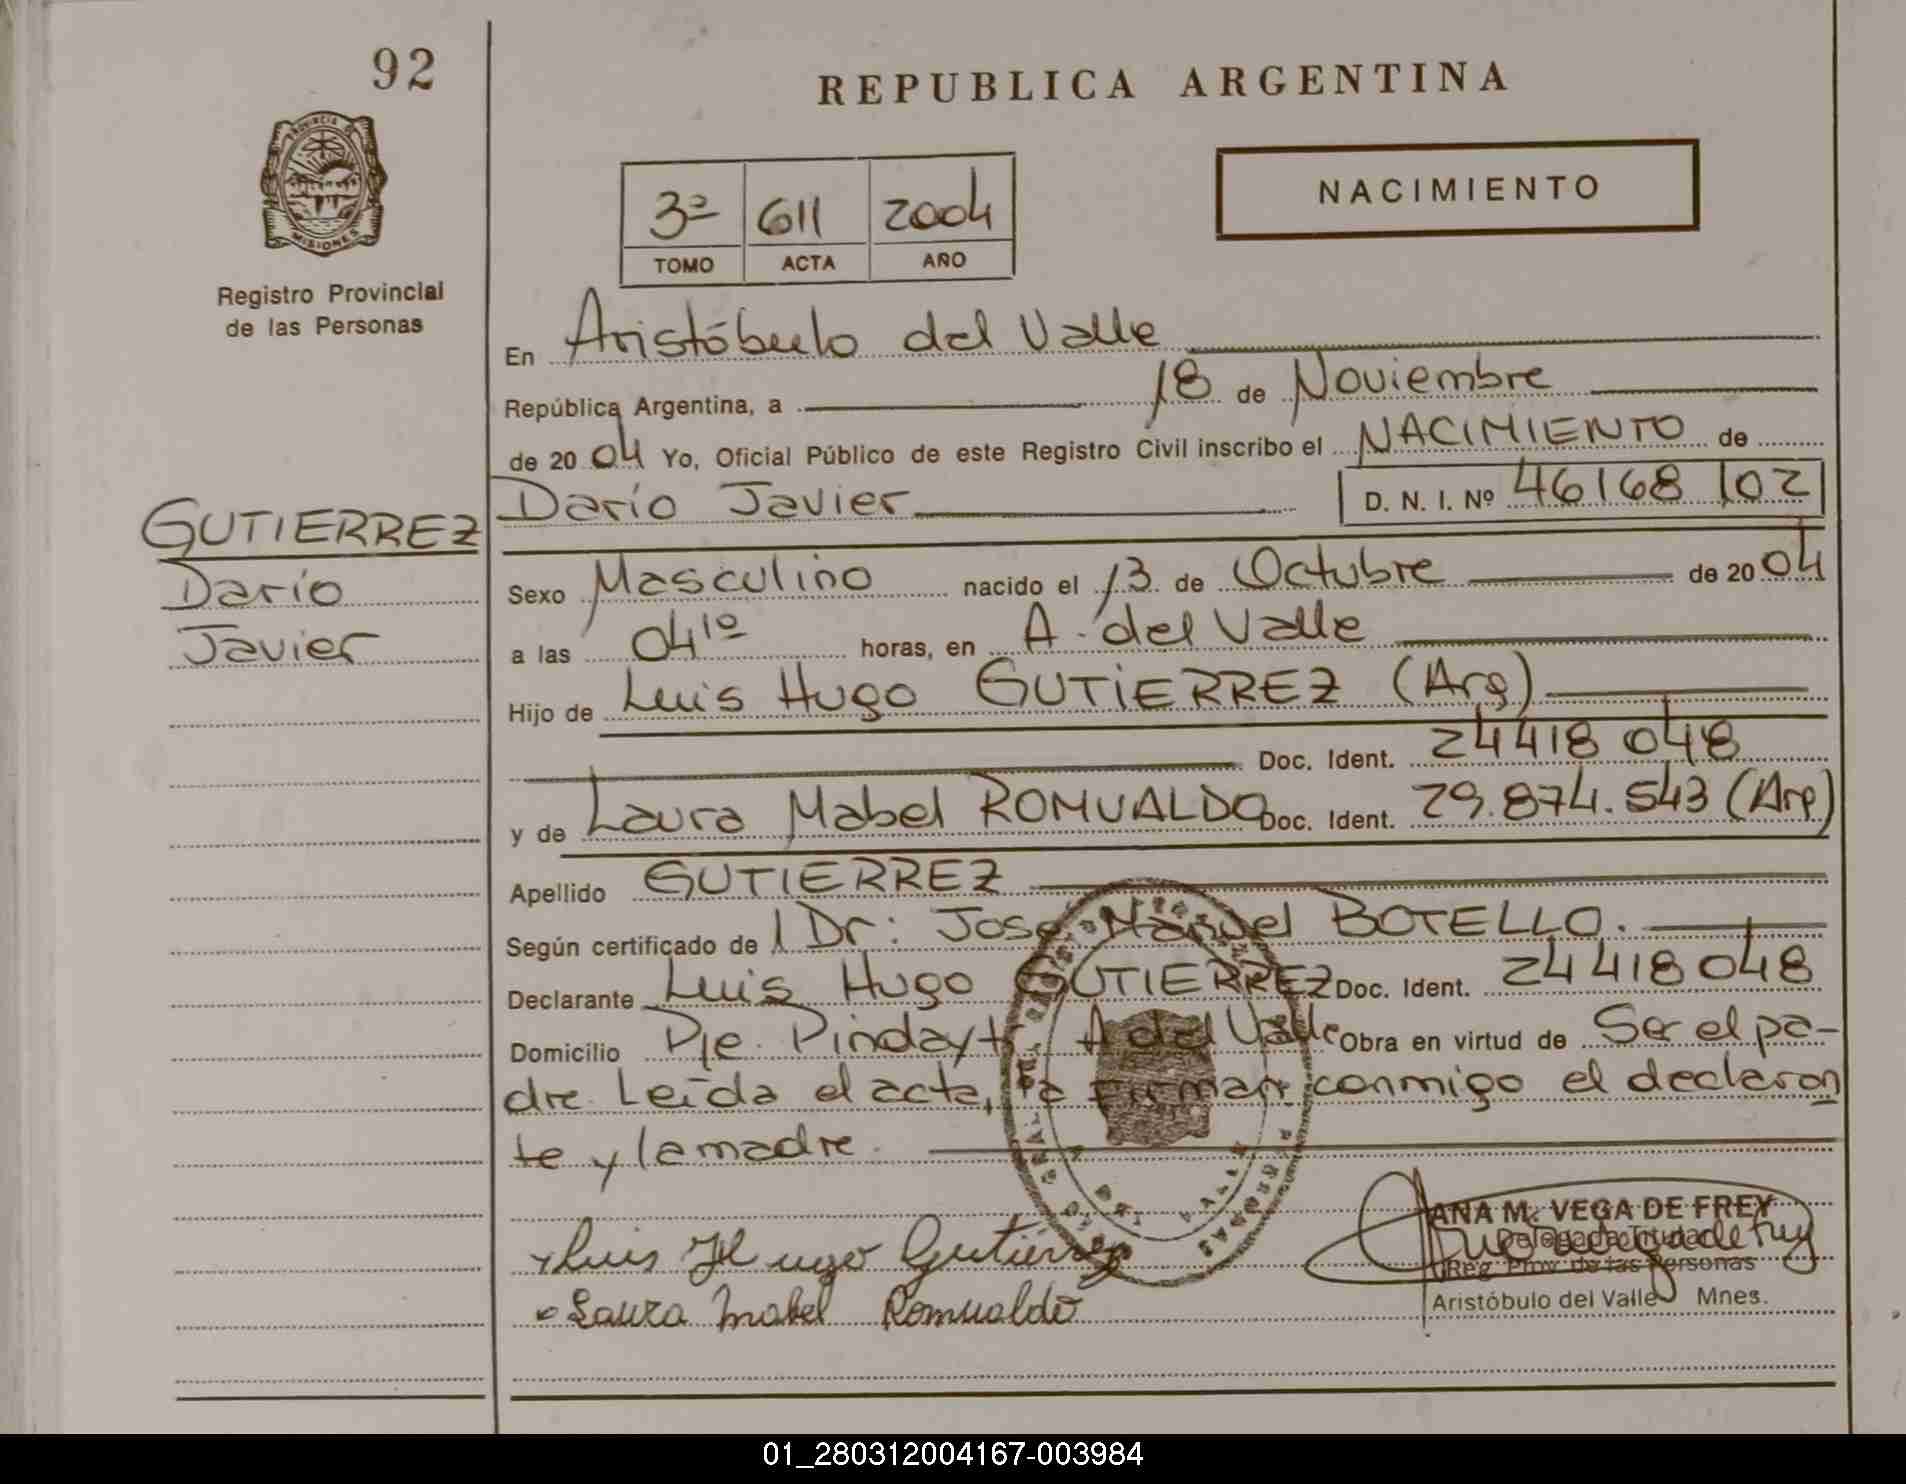 92
REPUBLICA ARGENTINA
NACIMIENTO
PROVINCIA DE
MISIONES
Registro Provincial
de las Personas
3º 611 2004
TOMO ACTA AÑO
En Aristóbulo del Valle
República Argentina, a 18 de Noviembre
de 2004 Yo, Oficial Público de este Registro Civil inscribo el NACIMIENTO de
GUTIERREZ
Darío
Javier
Darío Javier D. N. I. Nº 46168102
Sexo Masculino nacido el 13 de Octubre de 2004
a las 04¹º horas, en A. del Valle
Hijo de Luis Hugo GUTIERREZ (Arg)
Doc. Ident. 24418048
y de Laura Mabel ROMUALDO Doc. Ident. 29.874.543 (Arg)
Apellido GUTIERREZ
Según certificado de Dr: José Manuel BOTELLO.
Declarante Luis Hugo GUTIERREZ Doc. Ident. 24418048
Domicilio Pje. Pindayti A del Valle Obra en virtud de Ser el pa-
dre. Leída el acta, la firman conmigo el declaran
te y la madre.
Luis Hugo Gutiérrez
Laura Mabel Romualdo
ANA M. VEGA DE FREY
Delegada Titular
Reg. Prov. de las Personas
Aristóbulo del Valle Mnes.
01_280312004167-003984